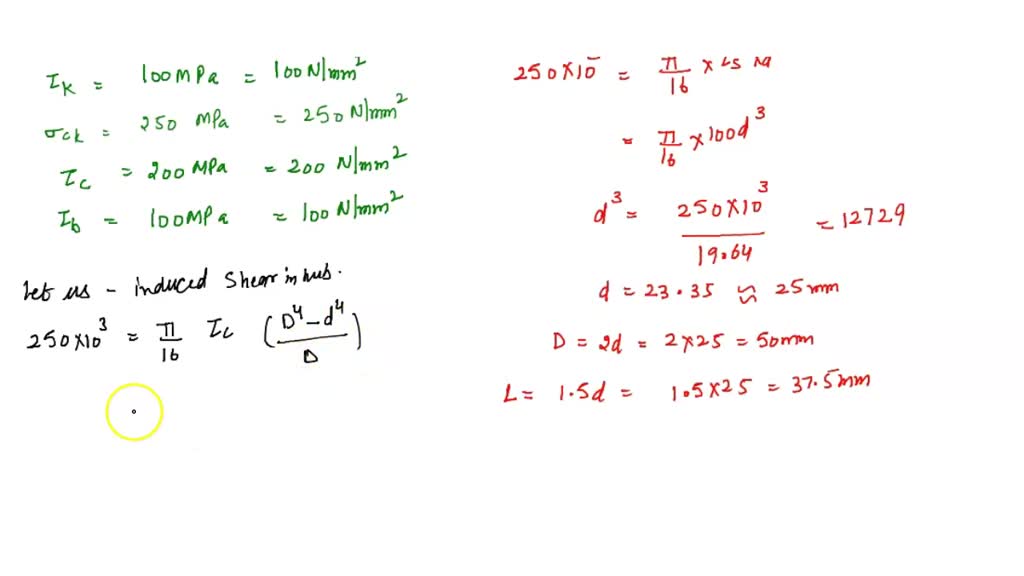 τk = 100 MPa = 100 N/mm²
σck = 250 MPa = 250 N/mm²
τc = 200 MPa = 200 N/mm²
τb = 100 MPa = 100 N/mm²
Let us - induced Shear in hub.
250×10³ = π/16 τc (D⁴ - d⁴ / D)
250×10 = π/16 ×
= π/16 × 100d³
d³ = 250×10³ / 19.64 = 12729
d = 23.35 ≈ 25mm
D = 2d = 2×25 = 50mm
L = 1.5d = 1.5×25 = 37.5mm